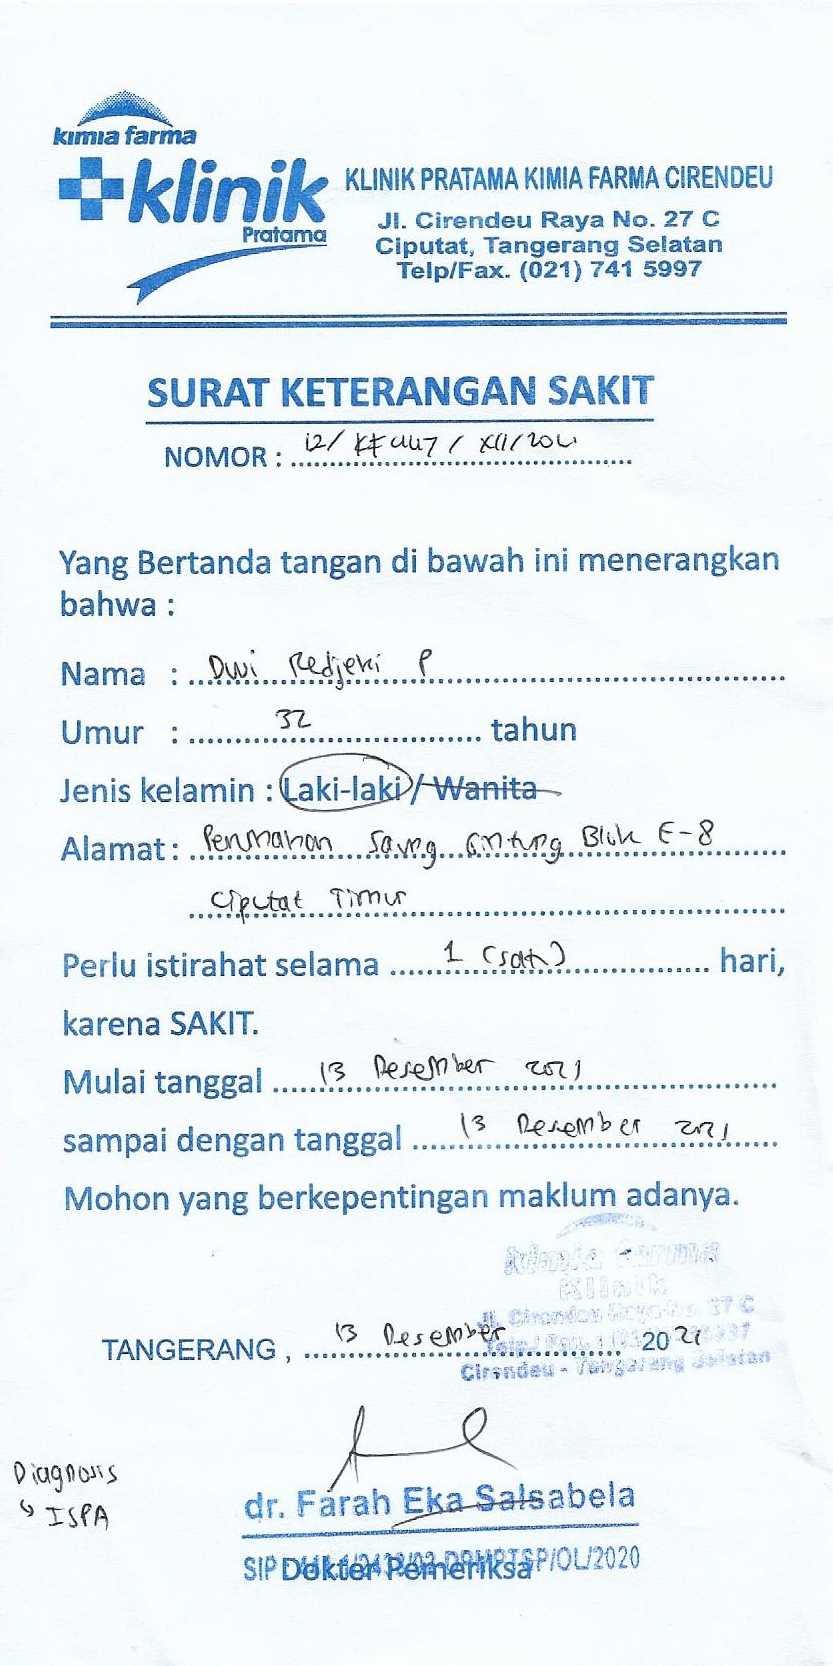 kimia farma
klinik
Pratama
KLINIK PRATAMA KIMIA FARMA CIRENDEU
Jl. Cirendeu Raya No. 27 C
Ciputat, Tangerang Selatan
Telp/Fax. (021) 741 5997
SURAT KETERANGAN SAKIT
NOMOR : 12/ KF 447 / XII/2021
Yang Bertanda tangan di bawah ini menerangkan
bahwa :
Nama : Dwi Redjeki P
Umur : 32 tahun
Jenis kelamin : Laki-laki / Wanita
Alamat : Perumahan Blok E-8
Ciputat Timur
Perlu istirahat selama 1 (satu) hari,
karena SAKIT.
Mulai tanggal 13 Desember 2021
sampai dengan tanggal 13 Desember 2021
Mohon yang berkepentingan maklum adanya.
Kimia Farma
Klinik
Jl. Cirendeu Raya No. 27 C
Cirendeu - Tangerang Selatan
TANGERANG , 13 Desember 2021
Diagnosis
↳ ISPA
dr. Farah Eka Salsabela
SIP DPMPTSP/OL/2020
Dokter Pemeriksa